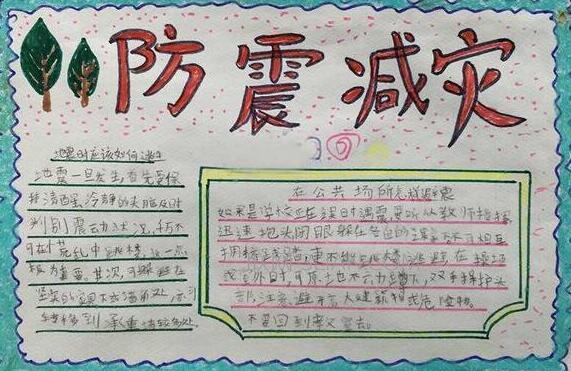 防震减灾
地震时应该如何逃生
地震一旦发生首先要保
持清醒冷静的头脑及时
判别震动状况,切不
可在慌乱中跳楼,这一点
极为重要。其次,可躲避在
坚实的家具下或墙角处,亦可
转移到承重墙较多处。
在公共场所怎样避震
如果是学校正在课时遇震要听从教师指挥
迅速抱头闭眼躲在各自的课桌下不可相互
拥挤踩踏,更不能跳楼逃避在操场
或室外时,可原地不动蹲下,双手保护头
部注意避开高大建筑物或危险物。
不要回到教室去。